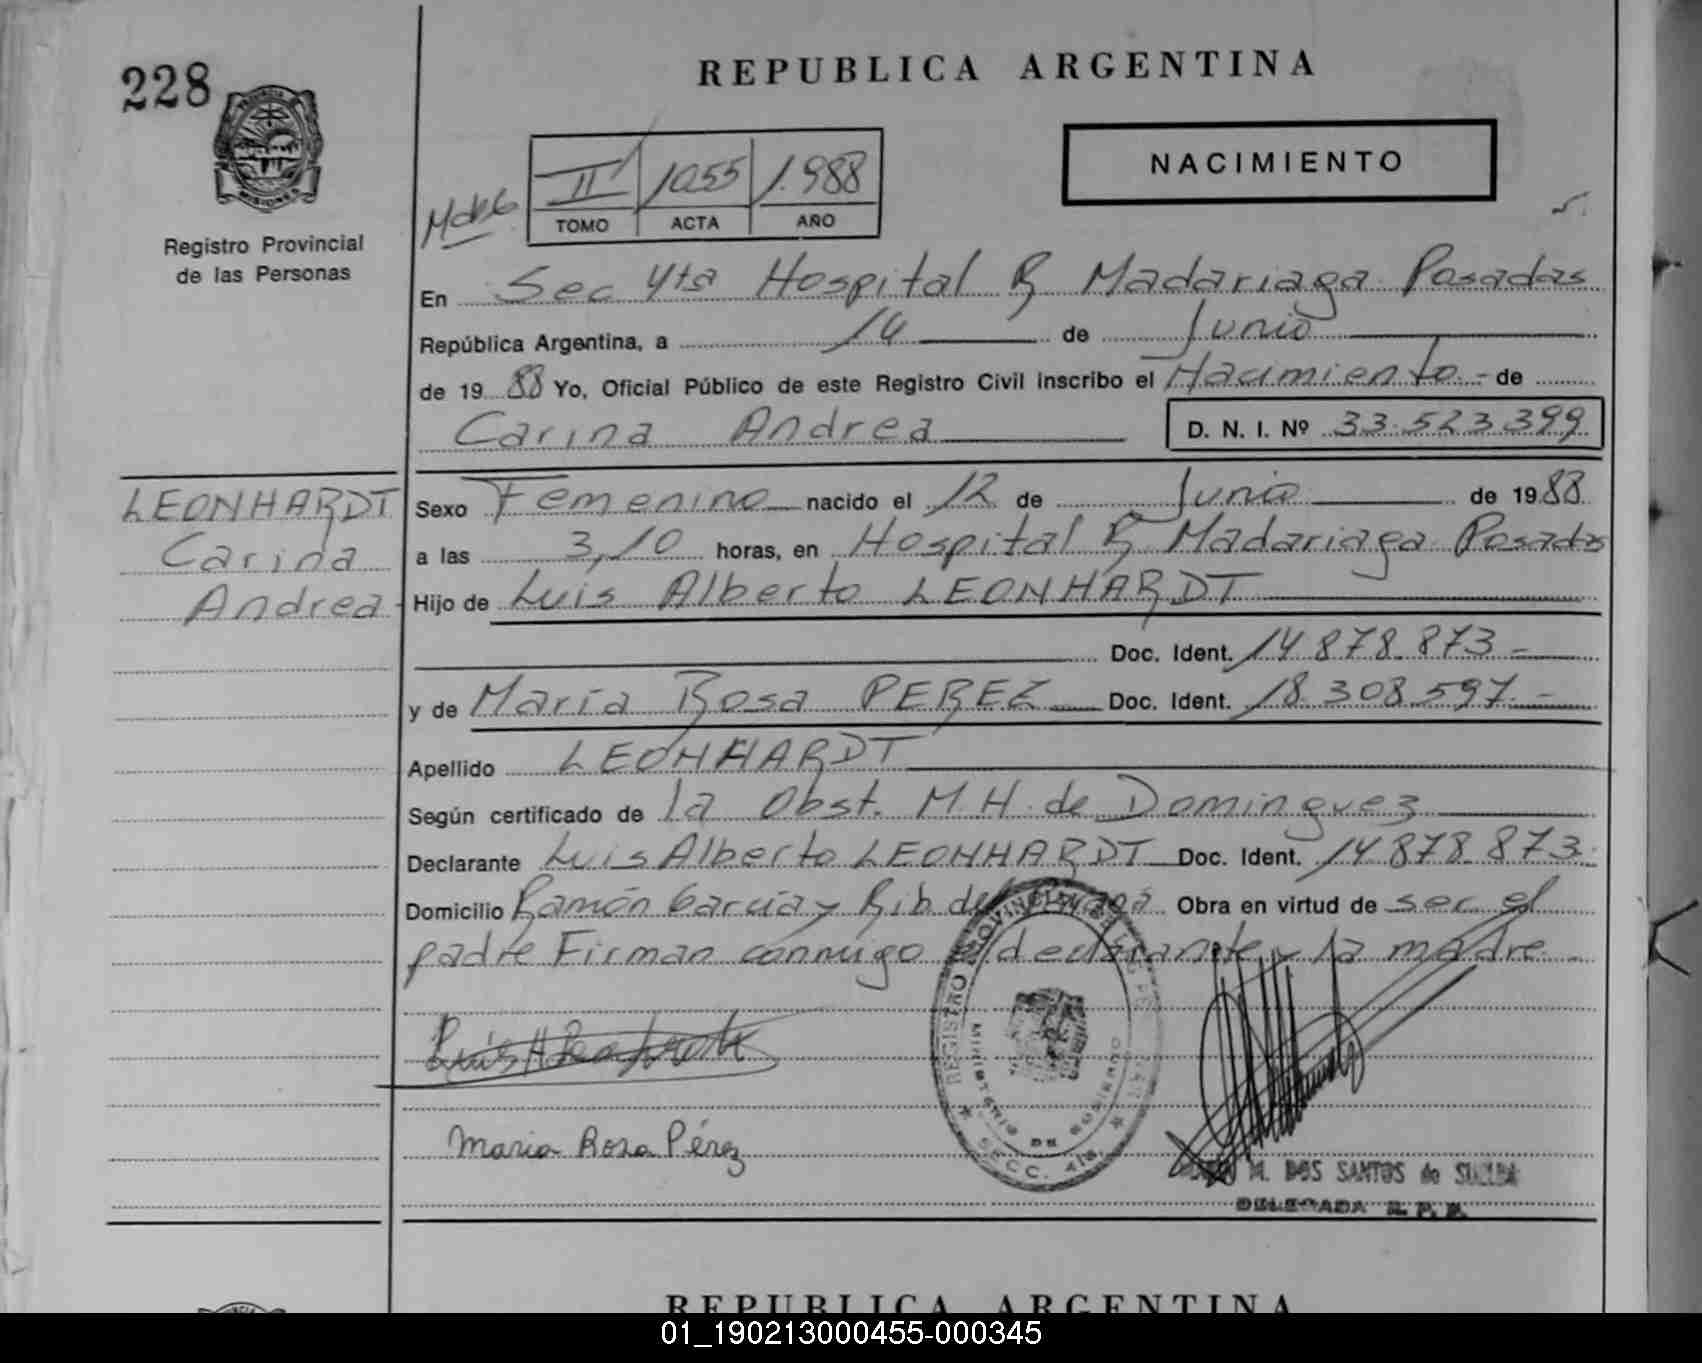 228
REPUBLICA ARGENTINA
PROVINCIA
MISIONES
Registro Provincial
de las Personas
II 1055 1.988
TOMO ACTA AÑO
NACIMIENTO
En Sec 4ta Hospital R Madariaga Posadas
República Argentina, a 14 de Junio
de 19 88 Yo, Oficial Público de este Registro Civil inscribo el Nacimiento - de
Carina Andrea
D. N. I. Nº 33.523.399
LEONHARDT
Carina
Andrea
Sexo Femenino nacido el 12 de Junio de 19 88
a las 3,10 horas, en Hospital R Madariaga Posadas
Hijo de Luis Alberto LEONHARDT
Doc. Ident. 14.878.873 -
y de María Rosa PEREZ Doc. Ident. 18.308.597 -
Apellido LEONHARDT
Según certificado de la Obst. M.H. de Dominguez
Declarante Luis Alberto LEONHARDT Doc. Ident. 14.878.873.
Domicilio Ramón García y Rib. del Obra en virtud de ser el
padre Firman conmigo el declarante y la madre -
REGISTRO PROVINCIAL DE
MINISTERIO DE GOBIERNO
SECC. 4ta.
Maria Rosa Pérez
M. DOS SANTOS de
DELEGADA R. P. P.
REPUBLICA ARGENTINA
01_190213000455-000345